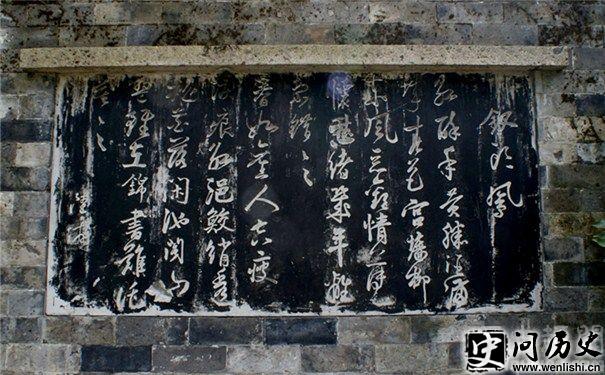 釵頭鳳
紅酥手黃縢酒滿
城春色宮墻柳
東風惡歡情薄一
懷愁緒幾年離
索錯々
春如舊人空瘦
淚痕紅浥鮫綃透
桃花落閑池閣山
盟雖在錦書難托
莫々
问历史
www.wenlishi.cn